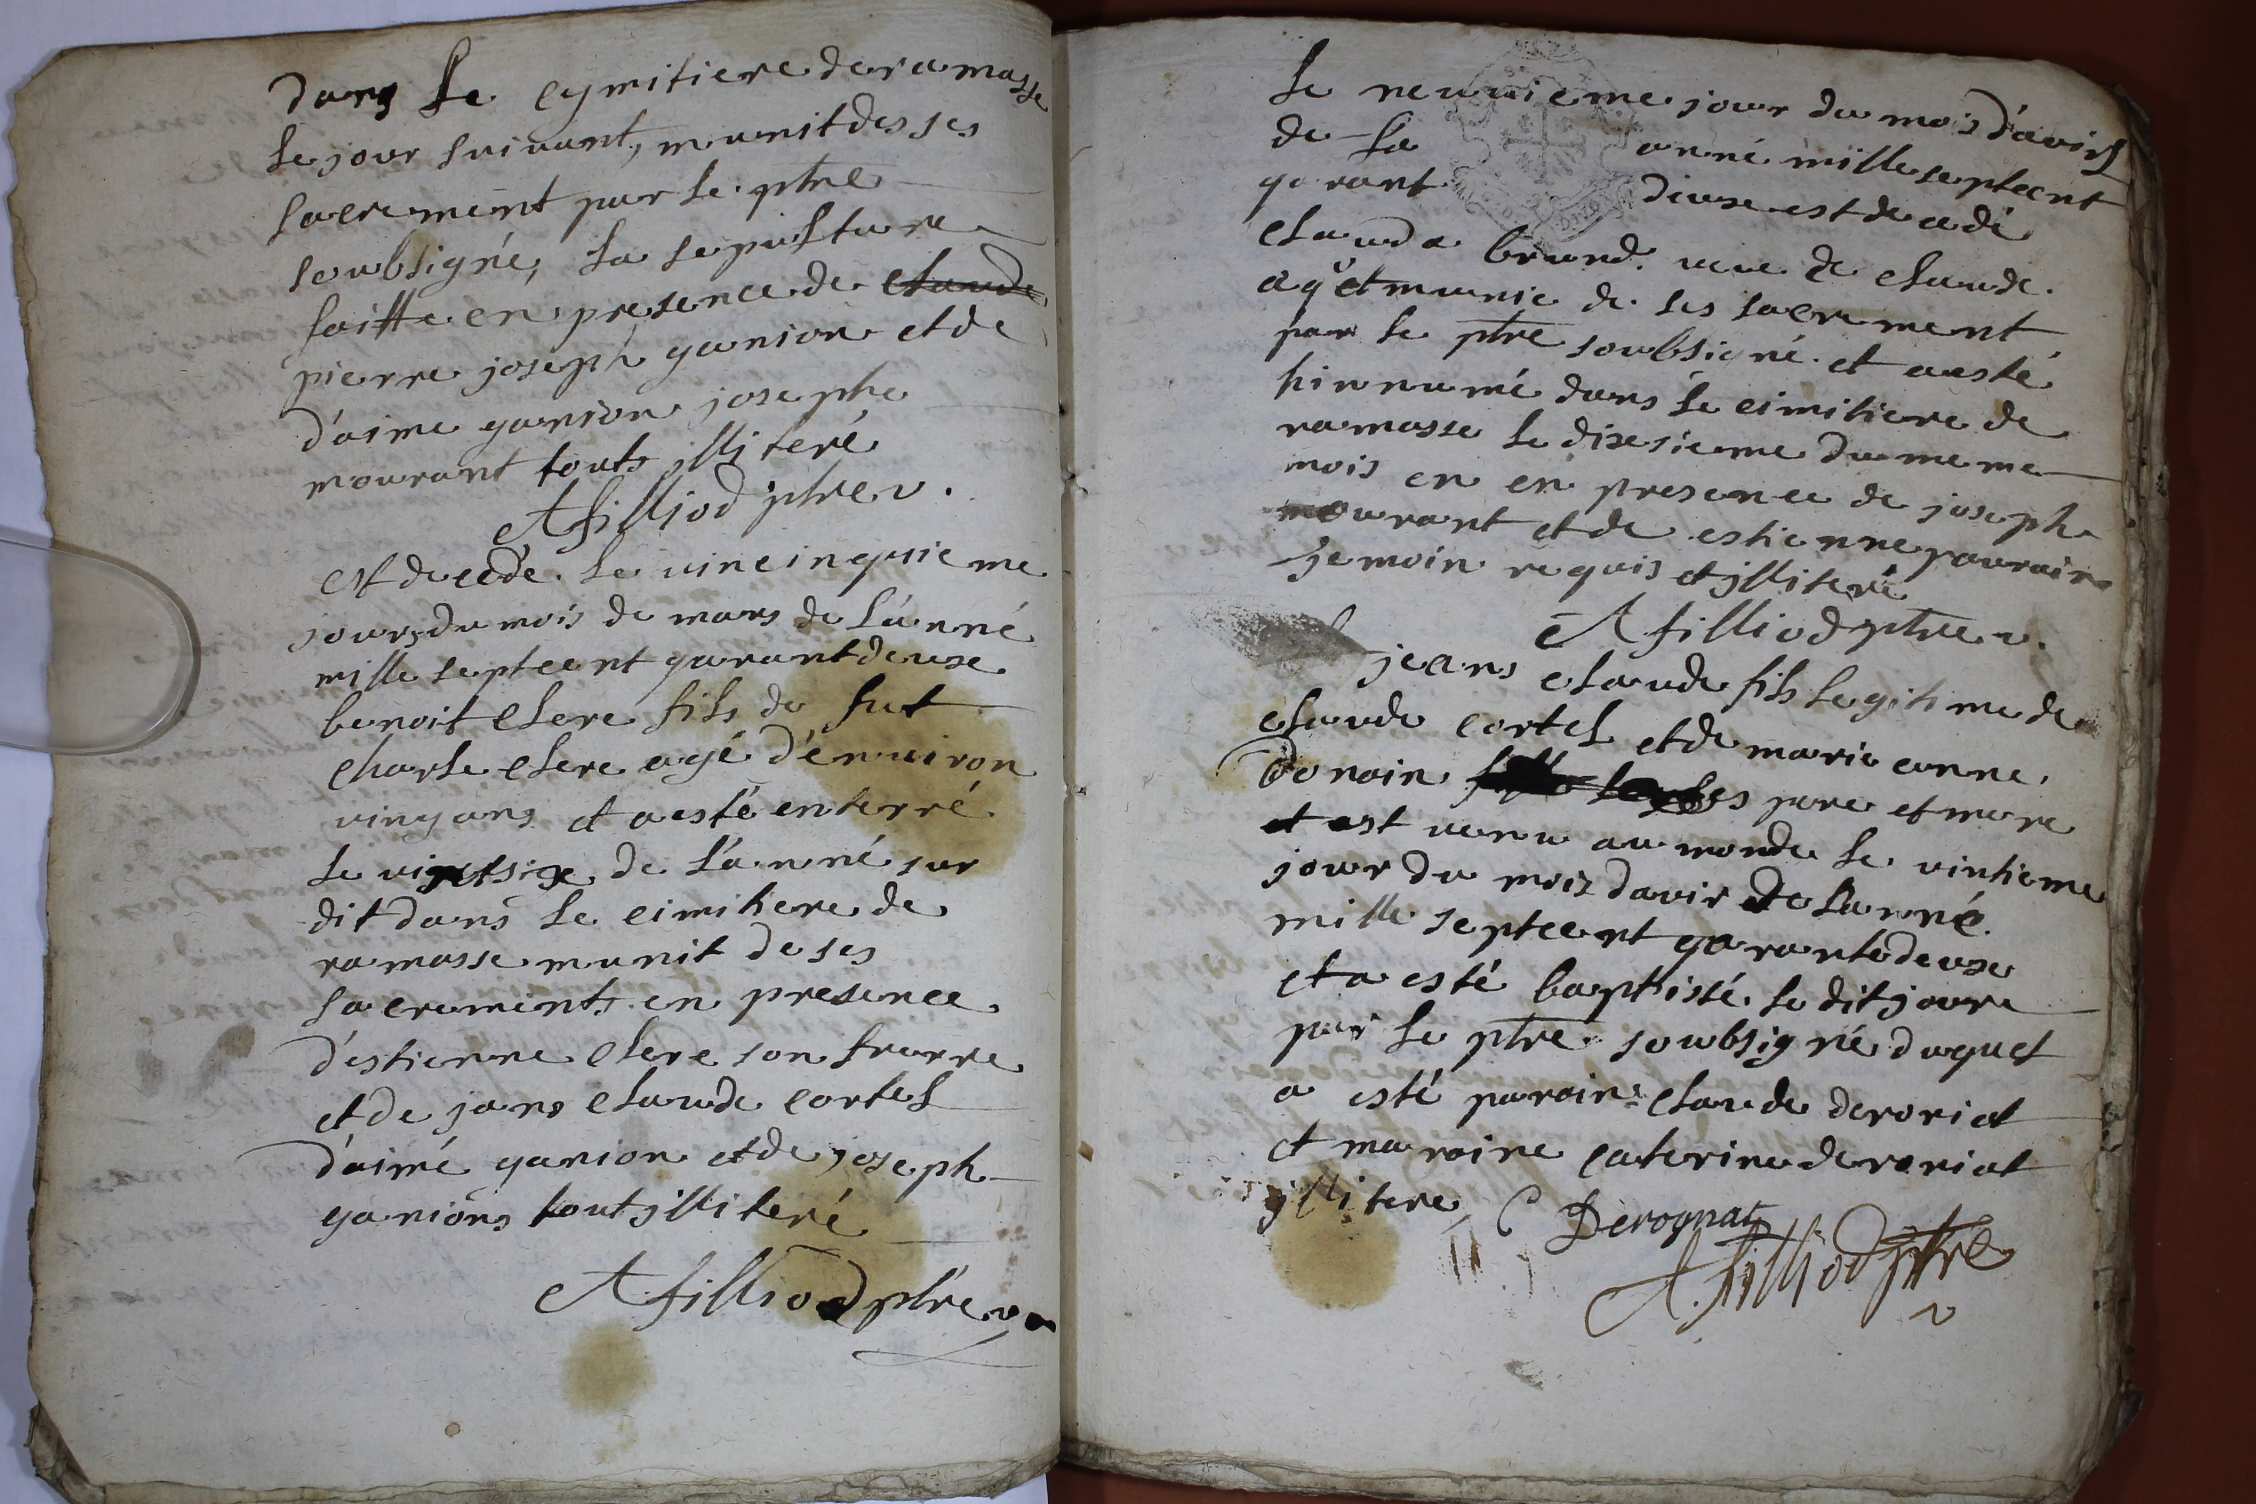 dans le cymitiere de ramasse
le jour suivant, munit des ses
sacrement par le ptre
soubsigné, la sepulture
faitte en presence de claude
pierre joseph ganion et de
d'aime ganion josephe
mourant touts illiteré
A filliod ptre v.
est decedé le vincinquieme
jours du mois de mars de l'anné
mille septcent quarantdeuse
benoit clere fils de fut
charle clere agé d'environ
vingans et a esté enterré
le vigntsixe de l'anné sur
dit dans le cimitiere de
ramasse munit de ses
sacrements en presence
d'estienne clere son frerre
et de jans claude cortel
d'aimé ganion et de joseph
ganions tout illiteré
A filliod ptre v
le neuvieme jour du mois d'avirl
de la anné mille septcent
garant deuse est decedé
clauda brund veve de claude
et munie de ses sacrement
par le ptre soubsigné et a esté
hinnumé dans le cimitiere de
ramasse le dixsieme du meme
mois en en presence de joseph
mourant et de estienne
temoin requis et illiteré
A filliod ptre v.
jeans claude fils legitime de
claude cortel et de marie anne
donain pere et mere
et est venu au monde le vintieme
jour du mois davir de lanné
mille septcent garantedeuse
et a esté baptisté le dit joure
par le ptre soubsigné duquel
a esté parain claude deroriat
et maraine caterine deroriat
illitere C Derognat
A. filliod ptre
v